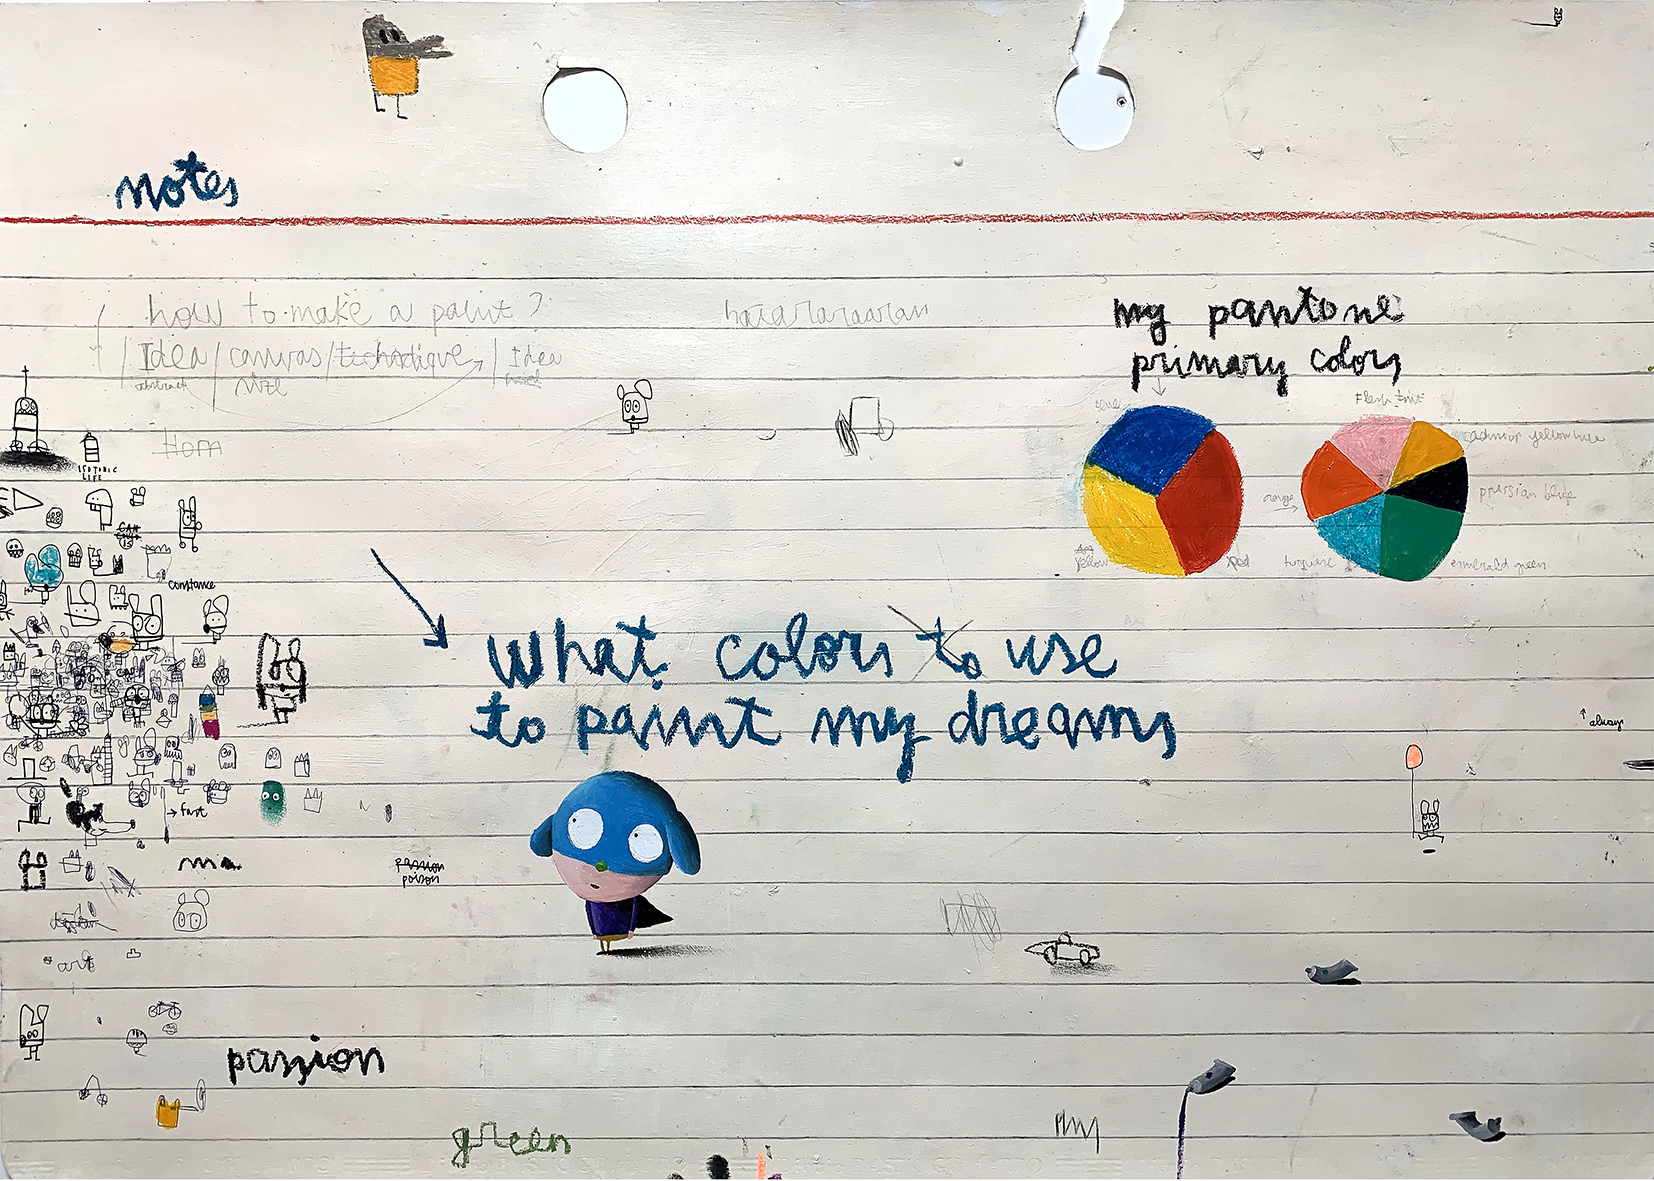 notes
how to make a paint?
Idea / canvas / technique / Idea
abstract size
my pantone
primary colors
Flesh tint
yellow hue
orange
prussian blue
yellow
Red
emerald green
Hom
ISOTONIC
LIFE
constance
What colors to use
to paint my dreams
always
fast
ma
passion
poison
art
passion
green
my